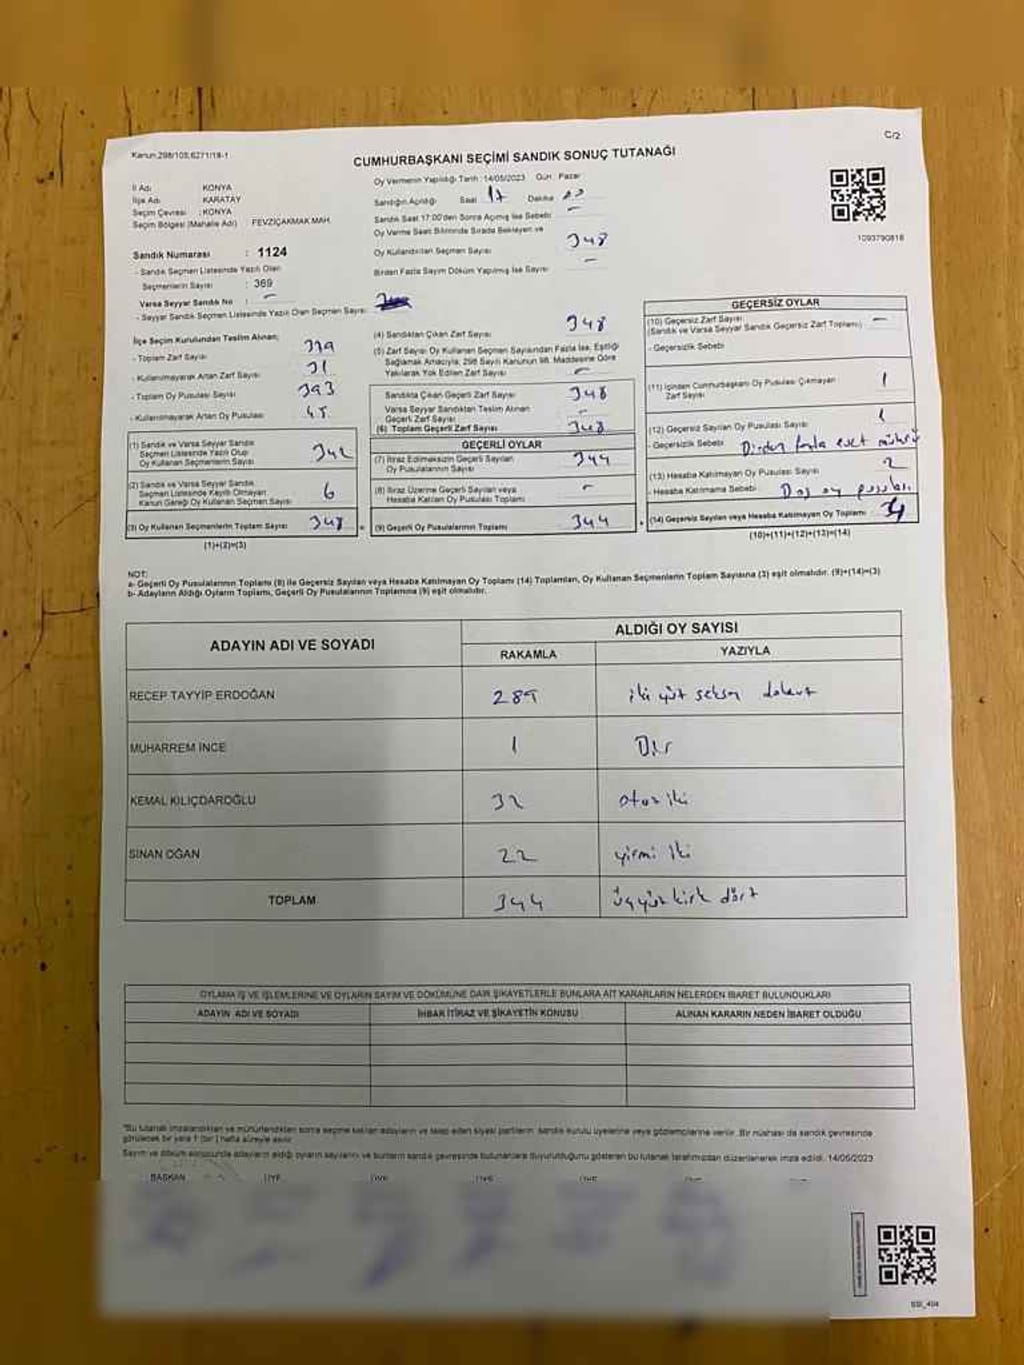 Kanun;298/105;6271/18-1
C/2
CUMHURBAŞKANI SEÇİMİ SANDIK SONUÇ TUTANAĞI
İl Adı : KONYA
İlçe Adı : KARATAY
Seçim Çevresi : KONYA
Seçim Bölgesi (Mahalle Adı) FEVZİÇAKMAK MAH.
Sandık Numarası : 1124
- Sandık Seçmen Listesinde Yazılı Olan
Seçmenlerin Sayısı : 369
Varsa Seyyar Sandık No : -
- Seyyar Sandık Seçmen Listesinde Yazılı Olan Seçmen Sayısı
Oy Vermenin Yapıldığı Tarih : 14/05/2023 Gün : Pazar
Sandığın Açıldığı Saat 17 Dakika
Sandık Saat 17:00'den Sonra Açılmış İse Sebebi : -
Oy Verme Saati Bitiminde Sırada Bekleyen ve
Oy Kullandırılan Seçmen Sayısı 348
Birden Fazla Sayım Döküm Yapılmış İse Sayısı -
1093790818
İlçe Seçim Kurulundan Teslim Alınan;
- Toplam Zarf Sayısı 379
- Kullanılmayarak Artan Zarf Sayısı 31
- Toplam Oy Pusulası Sayısı 393
- Kullanılmayarak Artan Oy Pusulası 45
(1) Sandık ve Varsa Seyyar Sandık
Seçmen Listesinde Yazılı Olup
Oy Kullanan Seçmenlerin Sayısı 342
(2) Sandık ve Varsa Seyyar Sandık
Seçmen Listesinde Kayıtlı Olmayan
Kanun Gereği Oy Kullanan Seçmen Sayısı 6
(3) Oy Kullanan Seçmenlerin Toplam Sayısı 348
(1)+(2)=(3)
(4) Sandıktan Çıkan Zarf Sayısı 348
(5) Zarf Sayısı Oy Kullanan Seçmen Sayısından Fazla İse, Eşitliği
Sağlamak Amacıyla, 298 Sayılı Kanunun 98. Maddesine Göre
Yakılarak Yok Edilen Zarf Sayısı -
Sandıkta Çıkan Geçerli Zarf Sayısı 348
Varsa Seyyar Sandıktan Teslim Alınan
Geçerli Zarf Sayısı -
(6) Toplam Geçerli Zarf Sayısı 348
GEÇERLİ OYLAR
(7) İtiraz Edilmeksizin Geçerli Sayılan
Oy Pusulalarının Sayısı 344
(8) İtiraz Üzerine Geçerli Sayılan veya
Hesaba Katılan Oy Pusulaları Toplamı -
(9) Geçerli Oy Pusulalarının Toplamı 344
GEÇERSİZ OYLAR
(10) Geçersiz Zarf Sayısı
(Sandık ve Varsa Seyyar Sandık Geçersiz Zarf Toplamı) -
- Geçersizlik Sebebi
(11) İçinden Cumhurbaşkanı Oy Pusulası Çıkmayan
Zarf Sayısı 1
(12) Geçersiz Sayılan Oy Pusulası Sayısı 1
- Geçersizlik Sebebi Birden fazla evet mührü
(13) Hesaba Katılmayan Oy Pusulası Sayısı 2
- Hesaba Katılmama Sebebi Boş oy pusulası
(14) Geçersiz Sayılan veya Hesaba Katılmayan Oy Toplamı 4
(10)+(11)+(12)+(13)=(14)
NOT:
a- Geçerli Oy Pusulalarının Toplamı (9) ile Geçersiz Sayılan veya Hesaba Katılmayan Oy Toplamı (14) Toplamları, Oy Kullanan Seçmenlerin Toplam Sayısına (3) eşit olmalıdır. (9)+(14)=(3)
b- Adayların Aldığı Oyların Toplamı, Geçerli Oy Pusulalarının Toplamına (9) eşit olmalıdır.
ADAYIN ADI VE SOYADI
ALDIĞI OY SAYISI
RAKAMLA YAZIYLA
RECEP TAYYİP ERDOĞAN 289 iki yüz seksen dokuz
MUHARREM İNCE 1 Bir
KEMAL KILIÇDAROĞLU 32 otuz iki
SİNAN OĞAN 22 yirmi iki
TOPLAM 344 üçyüz kırk dört
OYLAMA İŞ VE İŞLEMLERİNE VE OYLARIN SAYIM VE DÖKÜMÜNE DAİR ŞİKAYETLERLE BUNLARA AİT KARARLARIN NELERDEN İBARET BULUNDUKLARI
ADAYIN ADI VE SOYADI İHBAR İTİRAZ VE ŞİKAYETİN KONUSU ALINAN KARARIN NEDEN İBARET OLDUĞU
"Bu tutanak imzalandıktan ve mühürlendikten sonra seçime katılan adayların ve talep eden siyasi partilerin sandık kurulu üyelerine veya gözlemcilerine verilir. Bir nüshası da sandık çevresinde
görülecek bir yere 1 (bir) hafta süreyle asılır.
Sayım ve döküm sonucunda adayların aldığı oyların sayılarını ve bunların sandık çevresinde bulunanlara duyurulduğunu gösteren bu tutanak tarafımızdan düzenlenerek imza edildi. 14/05/2023
BAŞKAN ÜYE ÜYE ÜYE ÜYE